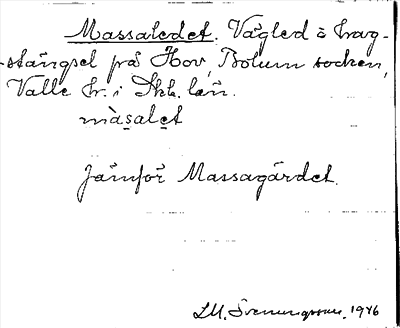 Massaledet. Vågled å hag-
stängsel på Hov, Bolum socken,
Valle hr. i Skb. län.
màsalet
Jämför Massagärdet.
S.M. Svenungsson, 1946